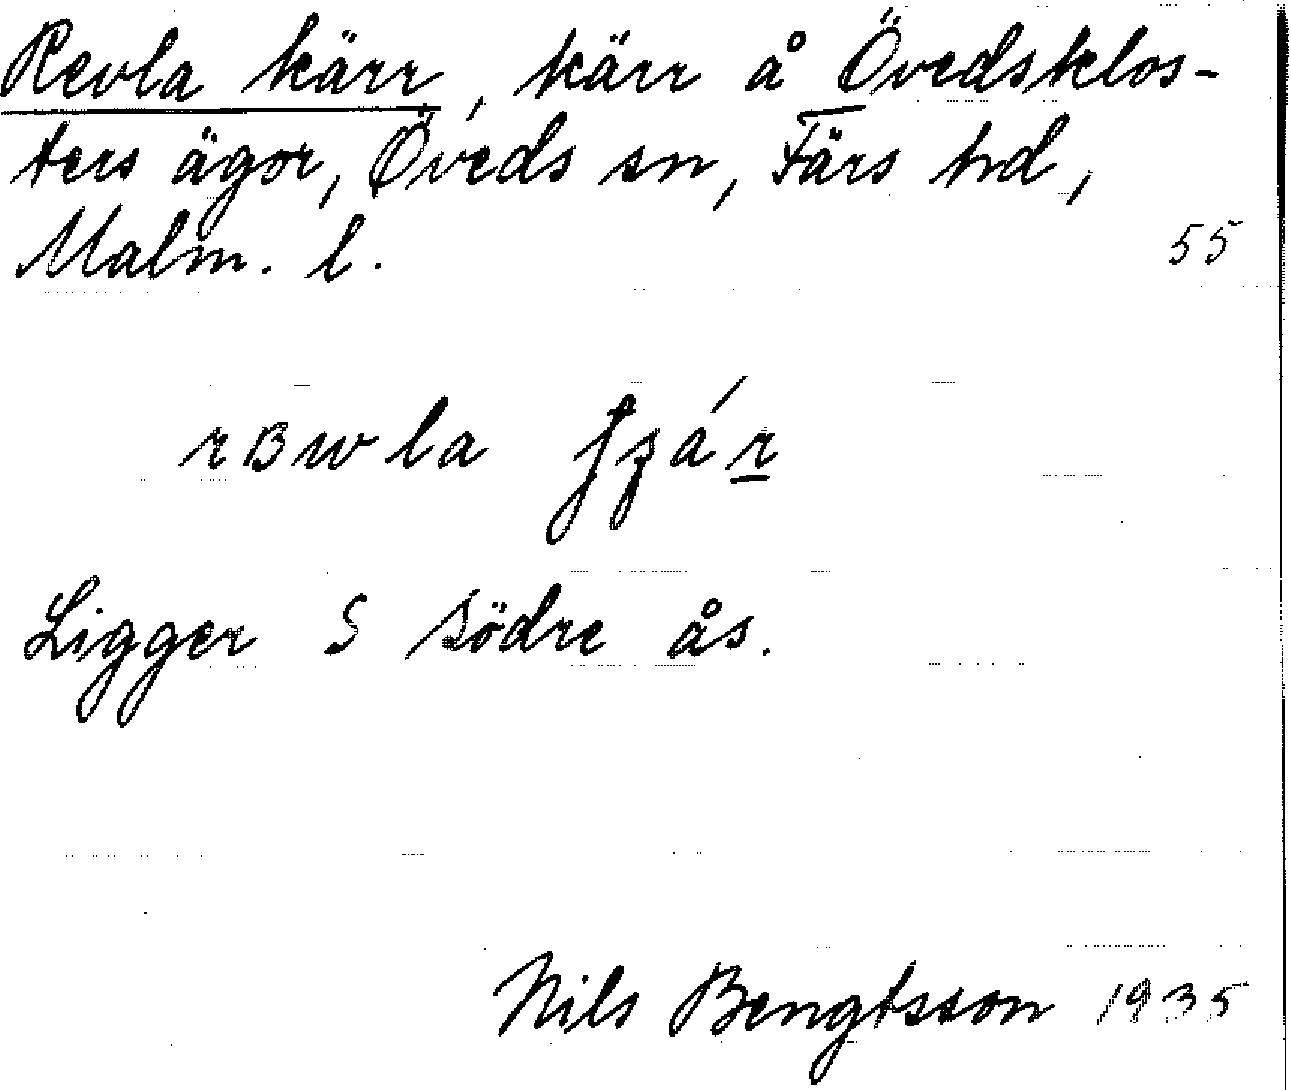 Revla kärr, kärr å Övedsklos-
ters ägor, Öveds sn, Färs hd,
Malm. l.
55
Ligger S Södre ås.
Nils Bengtsson 1935